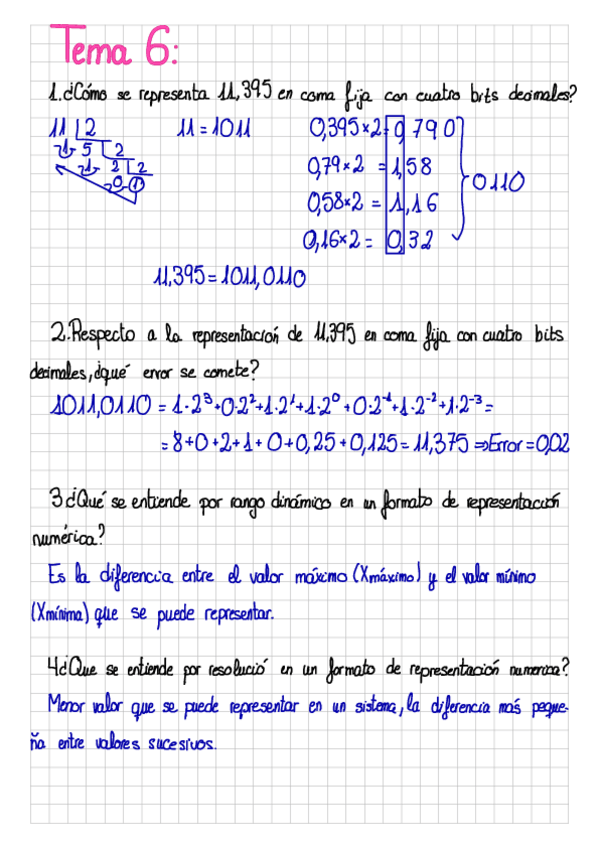 Tema 6:
1.¿Cómo se representa 11,395 en coma fija con cuatro bits decimales?
11 2 11 = 1011 0,395×2=0,790
1 5 2 0,79×2 = 1,58
1 2 2 0,58×2 = 1,16 0110
0 1 0,16×2 = 0,32
11,395 = 1011,0110
2.Respecto a la representación de 11,395 en coma fija con cuatro bits
decimales, ¿qué error se comete?
1011,0110 = 1·2³+0·2²+1·2¹+1·2⁰+0·2⁻¹+1·2⁻²+1·2⁻³=
= 8+0+2+1+0+0,25+0,125 = 11,375 ⇒ Error = 0,02
3¿Qué se entiende por rango dinámico en un formato de representación
numérica?
Es la diferencia entre el valor máximo (Xmáximo) y el valor mínimo
(Xmínima) que se puede representar.
4¿Que se entiende por resolució en un formato de representación numerica?
Menor valor que se puede representar en un sistema, la diferencia más peque-
ña entre valores sucesivos.